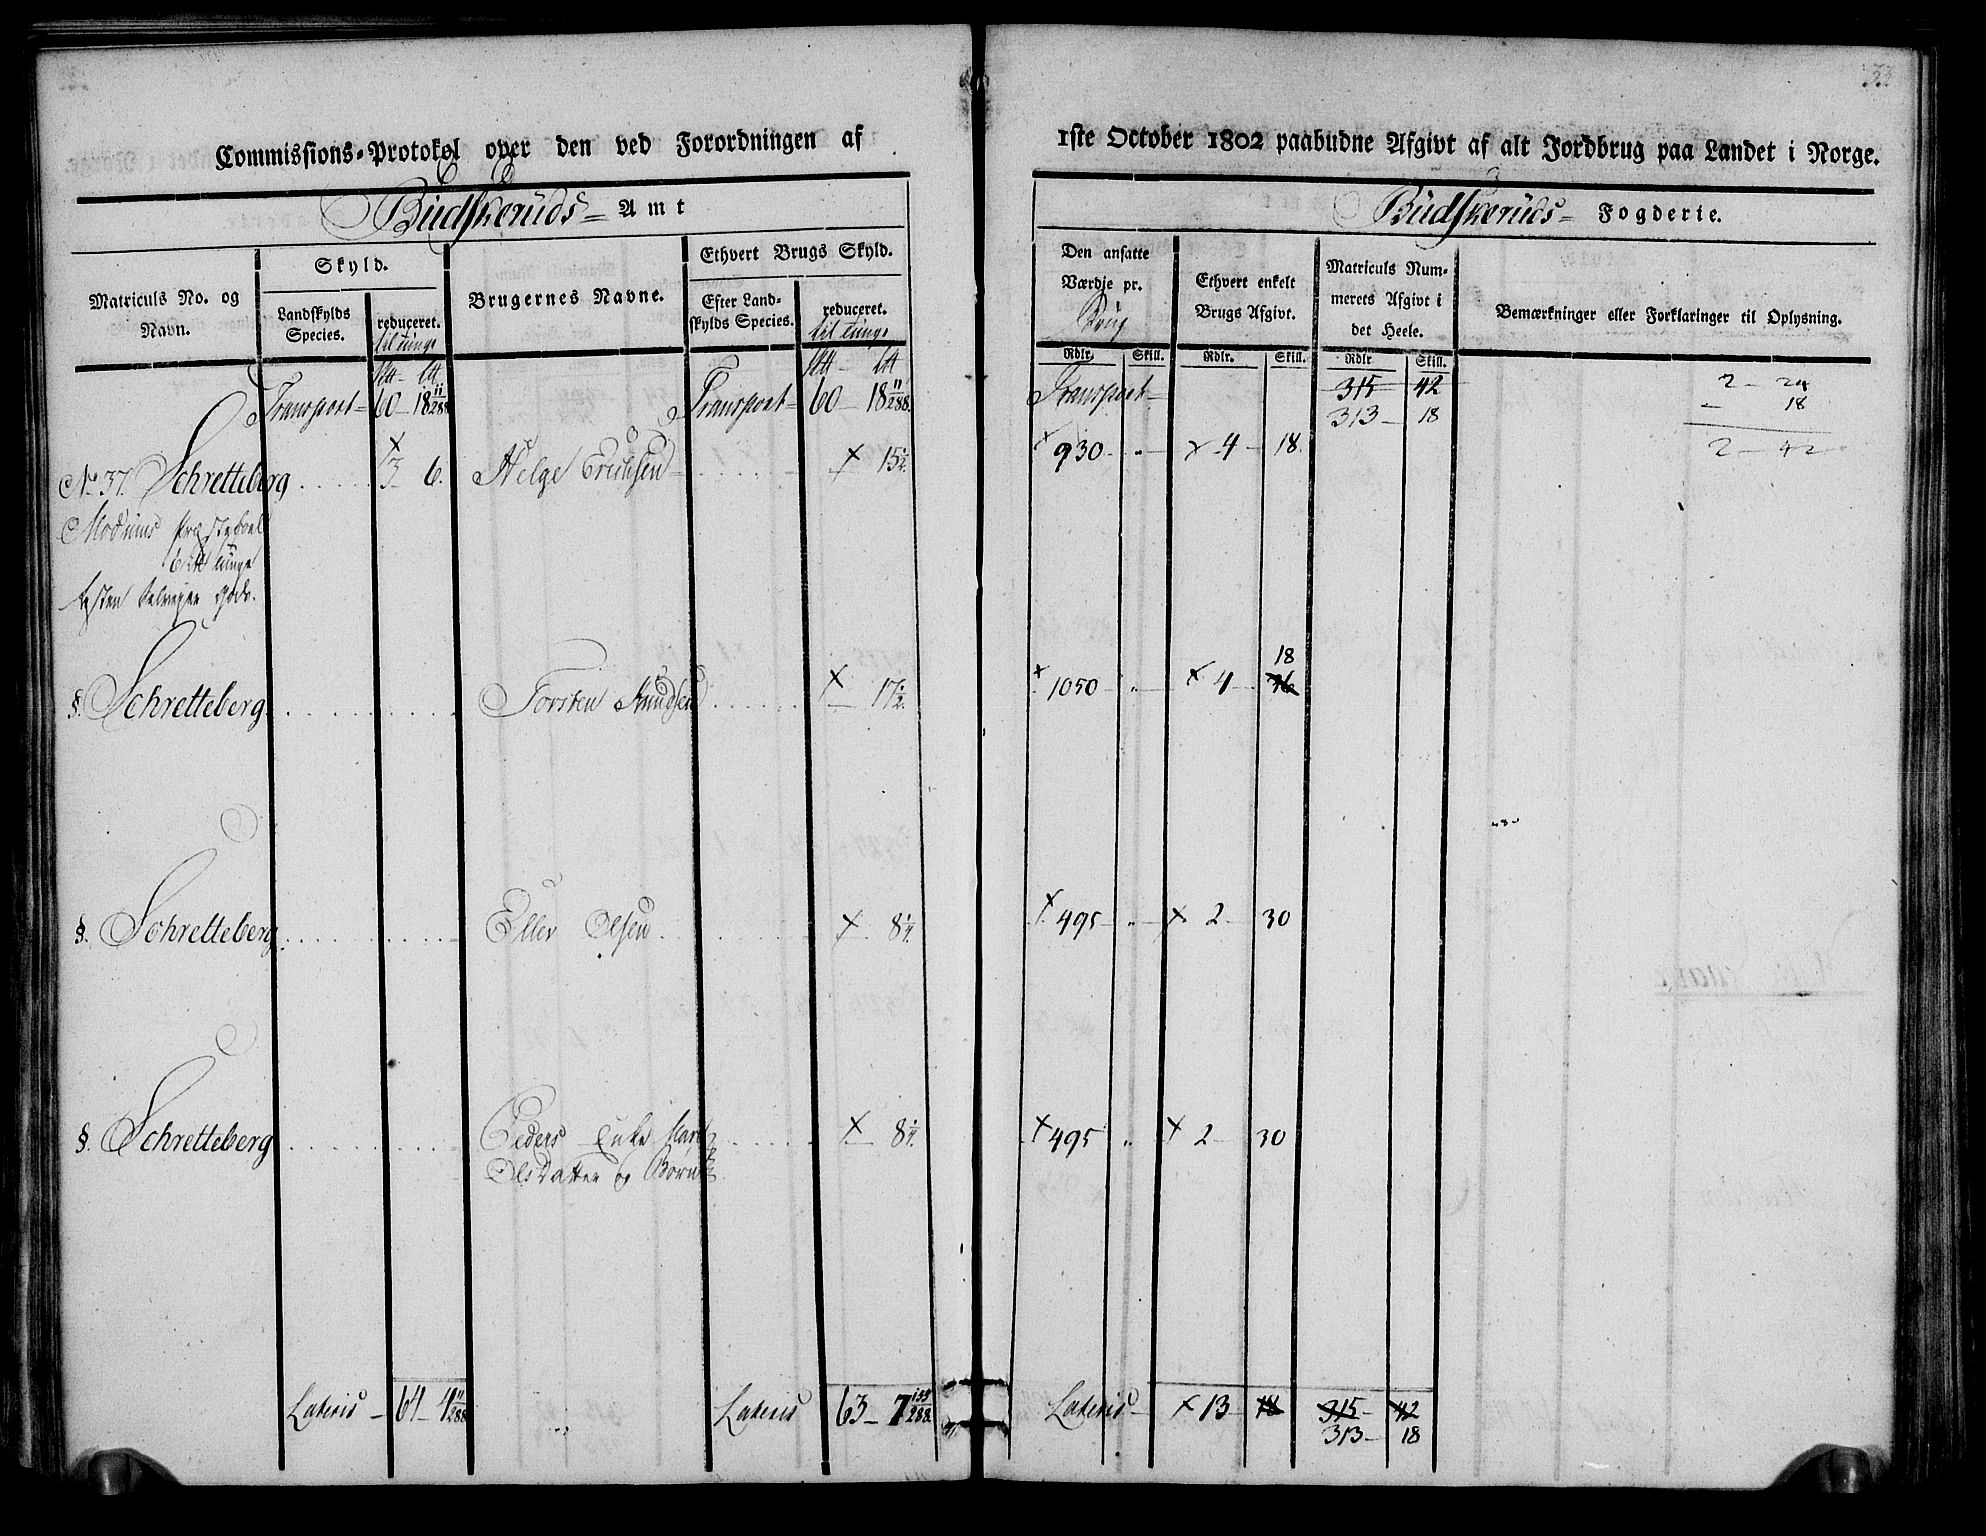 33
Commissions-Protokol over den ved Forordningen af
1ste October 1802 paabudne Afgivt af alt Jordbrug paa Landet i Norge.
Budskeruds Amt
Budskeruds Fogderie.
Matriculs No. og Navn.
Skyld.
Landskylds Species.
reduceret.
til tunge
Brugernes Navne.
Ethvert Brugs Skyld.
Efter Landskylds Species.
reduceret.
til tunge
Den ansatte Værdje pr.
Brug
Ethvert enkelt Brugs Afgivt.
Matriculs Nummerets Afgivt i det Heele.
Bemærkninger eller Forklaringer til Oplysning.
Rdlr. Skill. Rdlr. Skill. Rdlr Skill.
Transport 60 18 11/288 Transport 60 18 11/288. Transport 315 42 2 - 24
313 18 - 18
2 - 42
No 37. Schretteberg 3 6. Helge Erichsen 15 1/2. 930 " 4 18.
Modums
tunge
§. Schretteberg Torsten Knudsen 17 1/2. 1050 " 4 36 18
§. Schretteberg Eller Olsen 8 1/4. 495 " 2 30
§. Schretteberg Peders Enke 8 1/4. 495 " 2 30
Olsdatter og Børn
Lateris 64 4 11/288 Lateris 63 7 155/288. Lateris 13 18 315 42
313 18